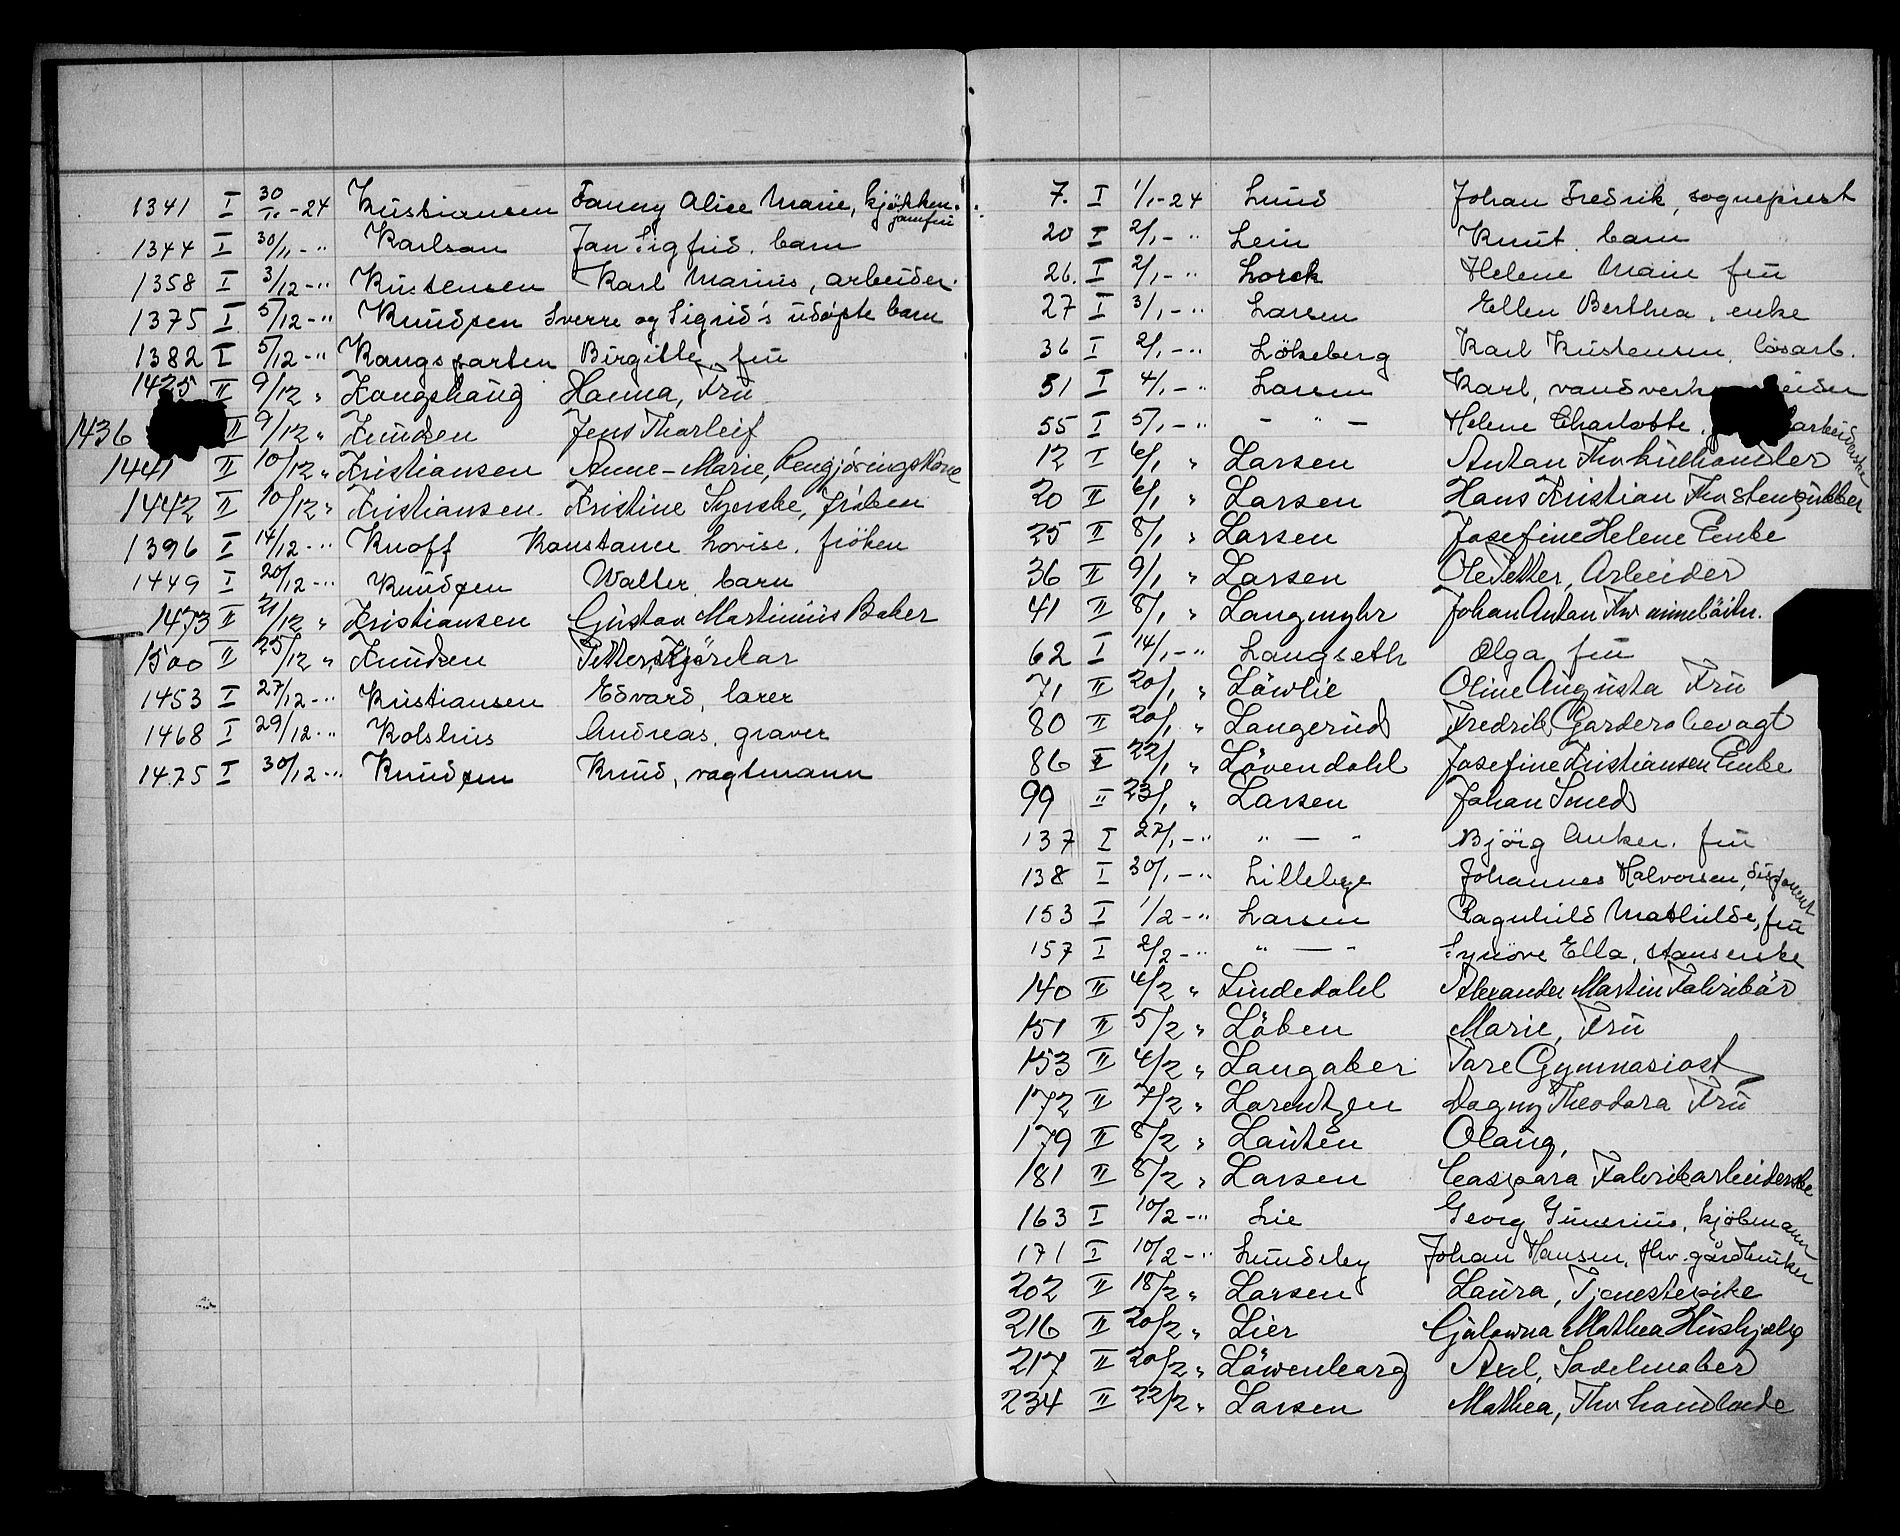 1341 I 30/11-24 Kristiansen Fanny Alice Marie, kjøkken-
jomfru
1344 I 30/11-" Karlsen Jan Sigfrid, barn
1358 I 3/12-" Kristensen Karl Marius, arbeider.
1375 I 5/12-" Knudsen Sverre og Sigrid's udøpte barn
1382 I 5/12-" Kongsparten Birgitte, fru
1425 II 9/12 " Kongshaug Hanna, Fru
1436 II 9/12 " Knudsen Jens Thorleif
1441 II 10/12 " Kristiansen Anne-Marie, Rengjöringskone
1442 II 10/12 " Kristiansen Kristine Syerske, fröken
1396 I 14/12-" Knoff Konstance Lovise, fröken
1449 I 20/12-" Knudsen Walter, barn
1473 II 21/12 " Kristiansen Gustav Martinius Baker
1500 II 25/12 " Knudsen Petter, Kjörekar
1453 I 27/12-" Kristiansen Edvard, lærer
1468 I 29/12-" Kolshus Andreas, graver
1475 I 30/12-" Knudsen Knud, vagtmann
7. I 1/1-24 Lund Johan Fredrik, sogneprest
20 I 2/1-" Lein Knut, barn
26. I 2/1-" Lorck Helene Marie fru
27 I 3/1-" Larsen Ellen Berthea, enke
36 I 2/1-" Lökeberg Karl Kristensen, løsarb.
51 I 4/1-" Larsen Karl, vandverks eider
55 I 5/1-" - " - Helene Charlotte, arbeiderske
12 I 6/1 " Larsen Anton Fhv kulhandler
20 II 6/1 " Larsen Hans Kristian Fhv stenpukker
25 II 8/1 " Larsen Josefine Helene Enke
36 II 9/1 " Larsen Ole Petter, Arbeider
41 II 8/1 " Langmyhr Johan Anton Fhv
62 I 14/1-" Langseth Olga, fru
71 II 20/1 " Löwlie Oline Augusta Fru
80 II 20/1 " Langerud Fredrik Garderobevagt
86 II 22/1 " Lövendahl Josefine Kristiansen Enke
99 II 23/1 " Larsen Johan Smed
137 I 27/1-" " - " Björg Anker, fru
138 I 30/1-" Lillebye Johannes Halvorsen, disponent
153 I 1/2-" Larsen Ragnhild Mathilde, fru
157 I 2/2-" " - " Synöve Ella, stanserske
140 II 4/2 " Lindedahl Alexander Martin Fabrikör
151 II 5/2 " Löken Marie, Fru
153 II 4/2 " Langaker Tore Gymnasiast
172 II 7/2 " Lorentzen Dagny Theodora Fru
179 II 8/2 " Lauten Olaug,
181 II 8/2 " Larsen Caspara Fabrikarbeiderske
163 I 10/2-" Lie Georg Gunerius, kjöbmann
171 I 10/2-" Lundsby Johan Hansen, fhv. gårdbruker
202 II 18/2 " Larsen Laura, Tjenestepike
216 II 20/2 " Lier Mathea Hushjælp
217 II 20/2 " Löwenborg Axel, Sadelmaker
234 II 22/2 " Larsen Mathea, Fhv handlende